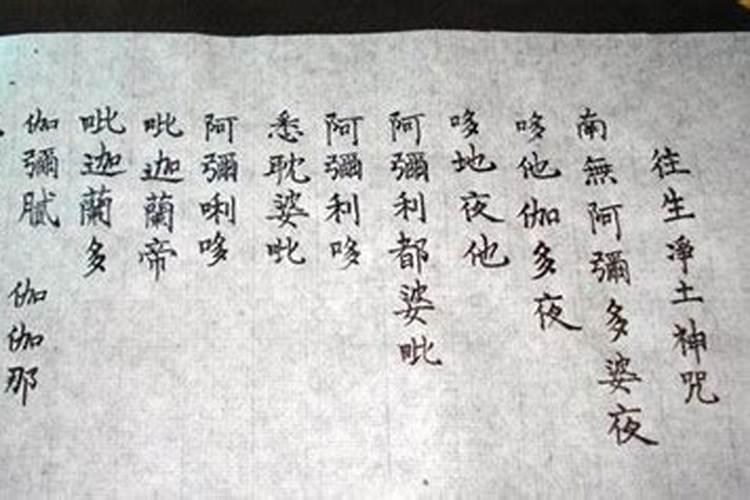 往生淨土神咒
南無阿彌多婆夜
哆他伽多夜
哆地夜他
阿彌利都婆毗
阿彌利哆
悉耽婆毗
阿彌唎哆
毗迦蘭帝
毗迦蘭多
伽彌膩 伽伽那